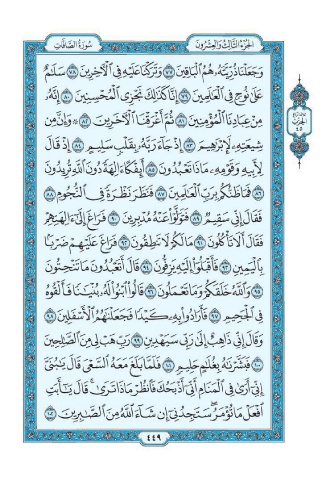 الجزء الثالث والعشرون
سورة الصافات
وَجَعَلْنَا ذُرِّيَّتَهُ هُمُ الْبَاقِينَ ٧٧ وَتَرَكْنَا عَلَيْهِ فِي الْآخِرِينَ ٧٨ سَلَامٌ
عَلَىٰ نُوحٍ فِي الْعَالَمِينَ ٧٩ إِنَّا كَذَٰلِكَ نَجْزِي الْمُحْسِنِينَ ٨٠ إِنَّهُ
مِنْ عِبَادِنَا الْمُؤْمِنِينَ ٨١ ثُمَّ أَغْرَقْنَا الْآخَرِينَ ٨٢ وَإِنَّ مِن
شِيعَتِهِ لَإِبْرَاهِيمَ ٨٣ إِذْ جَاءَ رَبَّهُ بِقَلْبٍ سَلِيمٍ ٨٤ إِذْ قَالَ
لِأَبِيهِ وَقَوْمِهِ مَاذَا تَعْبُدُونَ ٨٥ أَئِفْكًا آلِهَةً دُونَ اللَّهِ تُرِيدُونَ
٨٦ فَمَا ظَنُّكُم بِرَبِّ الْعَالَمِينَ ٨٧ فَنَظَرَ نَظْرَةً فِي النُّجُومِ ٨٨
فَقَالَ إِنِّي سَقِيمٌ ٨٩ فَتَوَلَّوْا عَنْهُ مُدْبِرِينَ ٩٠ فَرَاغَ إِلَىٰ آلِهَتِهِمْ
فَقَالَ أَلَا تَأْكُلُونَ ٩١ مَا لَكُمْ لَا تَنطِقُونَ ٩٢ فَرَاغَ عَلَيْهِمْ ضَرْبًا
بِالْيَمِينِ ٩٣ فَأَقْبَلُوا إِلَيْهِ يَزِفُّونَ ٩٤ قَالَ أَتَعْبُدُونَ مَا تَنْحِتُونَ
٩٥ وَاللَّهُ خَلَقَكُمْ وَمَا تَعْمَلُونَ ٩٦ قَالُوا ابْنُوا لَهُ بُنْيَانًا فَأَلْقُوهُ
فِي الْجَحِيمِ ٩٧ فَأَرَادُوا بِهِ كَيْدًا فَجَعَلْنَاهُمُ الْأَسْفَلِينَ ٩٨
وَقَالَ إِنِّي ذَاهِبٌ إِلَىٰ رَبِّي سَيَهْدِينِ ٩٩ رَبِّ هَبْ لِي مِنَ الصَّالِحِينَ
١٠٠ فَبَشَّرْنَاهُ بِغُلَامٍ حَلِيمٍ ١٠١ فَلَمَّا بَلَغَ مَعَهُ السَّعْيَ قَالَ يَا بُنَيَّ
إِنِّي أَرَىٰ فِي الْمَنَامِ أَنِّي أَذْبَحُكَ فَانظُرْ مَاذَا تَرَىٰ قَالَ يَا أَبَتِ
افْعَلْ مَا تُؤْمَرُ سَتَجِدُنِي إِن شَاءَ اللَّهُ مِنَ الصَّابِرِينَ ١٠٢
٤٤٩